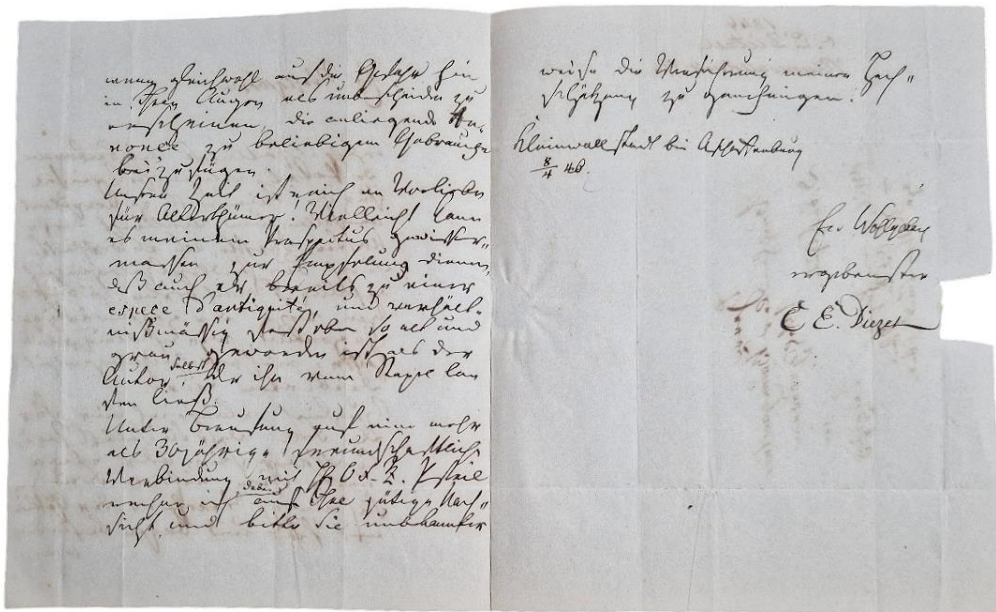 wenn gleichwohl auf die Gefahr hin
in Ihren Augen als unbescheiden zu
erscheinen, die anliegende An-
nonce zu beliebigem Gebrauche
beizufügen.
Unsere Zeit ist reich an Vorliebe
für Alterthümer! Vielleicht kann
es meinem Prospectus gewisser-
massen zur Empfelung dienen,
daß auch er bereits zu einer
espece d'antiquité, und verhält-
nißmässig so alt und
grau geworden ist, als der
Autor selbst, der ihn vom Stappel lau
fen ließ.
Unter Berufung auf eine mehr
als 30jährige freundschaftliche
Verbindung mit Pfeil
rechne ich dabei auf Ihre gütige Nach-
sicht und bitte Sie unbekannter
weise die Versicherung meiner Hoch-
schätzung zu genehmigen.
Kleinwallstadt bei Aschaffenburg
8/4 46.
Ew Wohlgeb
ergebenster
C E. Diezel